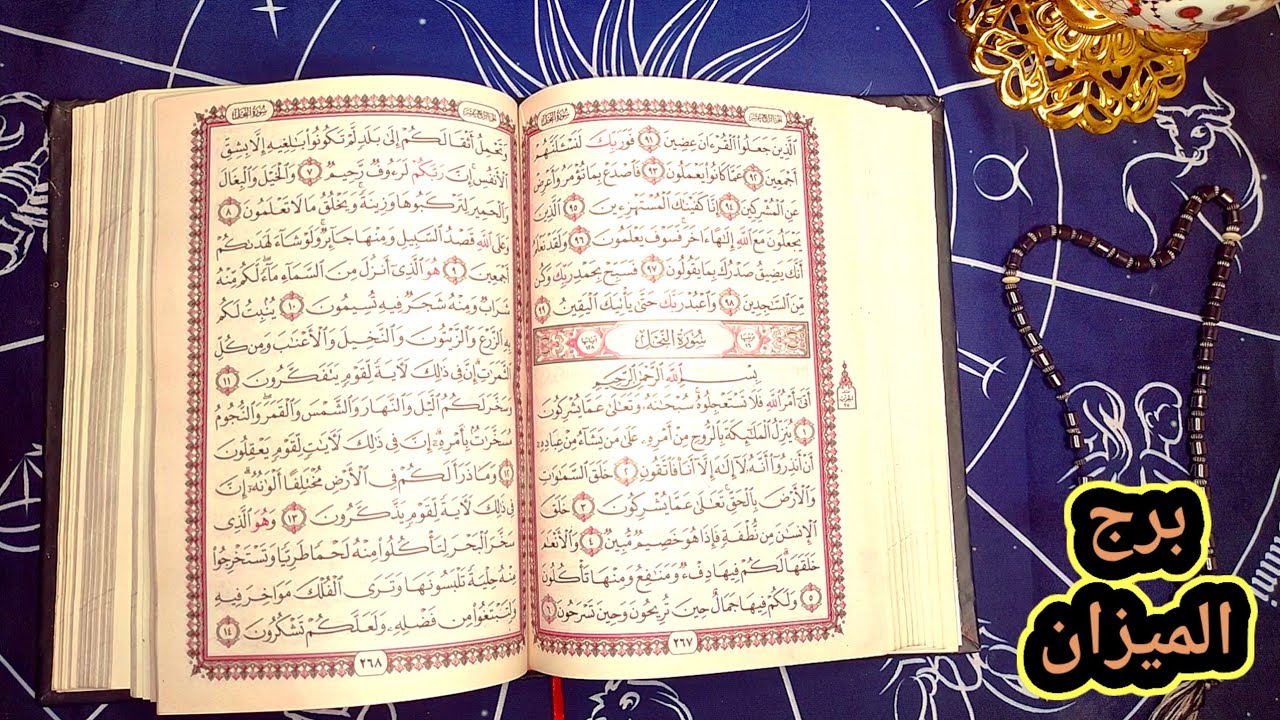 الجزء الرابع عشر
الَّذِينَ جَعَلُوا الْقُرْءَانَ عِضِينَ ٩١ فَوَرَبِّكَ لَنَسْـَٔلَنَّهُمْ
أَجْمَعِينَ ٩٢ عَمَّا كَانُوا يَعْمَلُونَ ٩٣ فَاصْدَعْ بِمَا تُؤْمَرُ وَأَعْرِضْ
عَنِ الْمُشْرِكِينَ ٩٤ إِنَّا كَفَيْنَاكَ الْمُسْتَهْزِءِينَ ٩٥ الَّذِينَ
يَجْعَلُونَ مَعَ اللَّهِ إِلَٰهًا ءَاخَرَ فَسَوْفَ يَعْلَمُونَ ٩٦ وَلَقَدْ نَعْلَمُ
أَنَّكَ يَضِيقُ صَدْرُكَ بِمَا يَقُولُونَ ٩٧ فَسَبِّحْ بِحَمْدِ رَبِّكَ وَكُن
مِّنَ السَّاجِدِينَ ٩٨ وَاعْبُدْ رَبَّكَ حَتَّىٰ يَأْتِيَكَ الْيَقِينُ ٩٩
سُورَةُ النَّحْلِ
بِسْمِ اللَّهِ الرَّحْمَٰنِ الرَّحِيمِ
أَتَىٰ أَمْرُ اللَّهِ فَلَا تَسْتَعْجِلُوهُ سُبْحَٰنَهُ وَتَعَالَىٰ عَمَّا يُشْرِكُونَ
١ يُنَزِّلُ الْمَلَٰئِكَةَ بِالرُّوحِ مِنْ أَمْرِهِ عَلَىٰ مَن يَشَاءُ مِنْ عِبَادِهِ
أَنْ أَنذِرُوا أَنَّهُ لَا إِلَٰهَ إِلَّا أَنَا فَاتَّقُونِ ٢ خَلَقَ السَّمَٰوَاتِ
وَالْأَرْضَ بِالْحَقِّ تَعَالَىٰ عَمَّا يُشْرِكُونَ ٣ خَلَقَ
الْإِنسَانَ مِن نُّطْفَةٍ فَإِذَا هُوَ خَصِيمٌ مُّبِينٌ ٤ وَالْأَنْعَامَ
خَلَقَهَا لَكُمْ فِيهَا دِفْءٌ وَمَنَافِعُ وَمِنْهَا تَأْكُلُونَ
٥ وَلَكُمْ فِيهَا جَمَالٌ حِينَ تُرِيحُونَ وَحِينَ تَسْرَحُونَ ٦
٢٦٧
وَتَحْمِلُ أَثْقَالَكُمْ إِلَىٰ بَلَدٍ لَّمْ تَكُونُوا بَالِغِيهِ إِلَّا بِشِقِّ
الْأَنفُسِ إِنَّ رَبَّكُمْ لَرَءُوفٌ رَّحِيمٌ ٧ وَالْخَيْلَ وَالْبِغَالَ
وَالْحَمِيرَ لِتَرْكَبُوهَا وَزِينَةً وَيَخْلُقُ مَا لَا تَعْلَمُونَ ٨
وَعَلَى اللَّهِ قَصْدُ السَّبِيلِ وَمِنْهَا جَائِرٌ وَلَوْ شَاءَ لَهَدَىٰكُمْ
أَجْمَعِينَ ٩ هُوَ الَّذِي أَنزَلَ مِنَ السَّمَاءِ مَاءً لَّكُم مِّنْهُ
شَرَابٌ وَمِنْهُ شَجَرٌ فِيهِ تُسِيمُونَ ١٠ يُنبِتُ لَكُم
بِهِ الزَّرْعَ وَالزَّيْتُونَ وَالنَّخِيلَ وَالْأَعْنَابَ وَمِن كُلِّ
الثَّمَرَٰتِ إِنَّ فِي ذَٰلِكَ لَآيَةً لِّقَوْمٍ يَتَفَكَّرُونَ ١١
وَسَخَّرَ لَكُمُ الَّيْلَ وَالنَّهَارَ وَالشَّمْسَ وَالْقَمَرَ وَالنُّجُومُ
مُسَخَّرَٰتٌ بِأَمْرِهِ إِنَّ فِي ذَٰلِكَ لَآيَٰتٍ لِّقَوْمٍ يَعْقِلُونَ
١٢ وَمَا ذَرَأَ لَكُمْ فِي الْأَرْضِ مُخْتَلِفًا أَلْوَانُهُ إِنَّ
فِي ذَٰلِكَ لَآيَةً لِّقَوْمٍ يَذَّكَّرُونَ ١٣ وَهُوَ الَّذِي
سَخَّرَ الْبَحْرَ لِتَأْكُلُوا مِنْهُ لَحْمًا طَرِيًّا وَتَسْتَخْرِجُوا
مِنْهُ حِلْيَةً تَلْبَسُونَهَا وَتَرَى الْفُلْكَ مَوَاخِرَ فِيهِ
وَلِتَبْتَغُوا مِن فَضْلِهِ وَلَعَلَّكُمْ تَشْكُرُونَ ١٤
٢٦٨
برج
الميزان